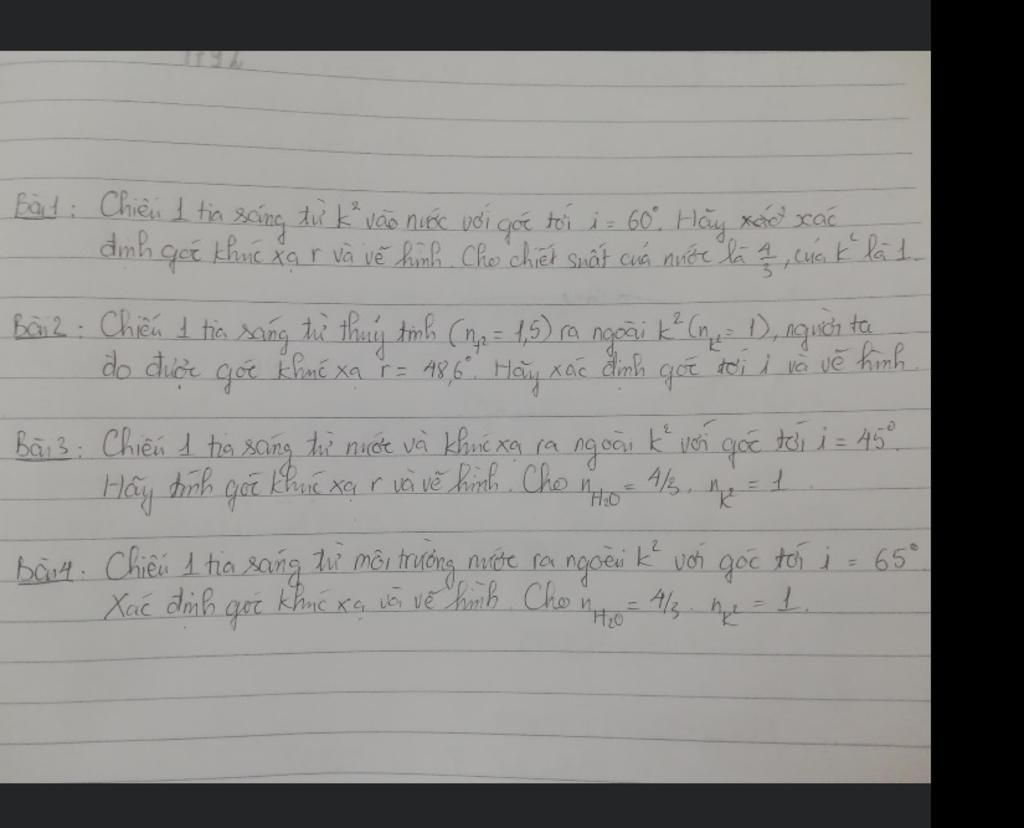 Bài 1: Chiếu 1 tia sáng từ k² vào nước với góc tới i = 60°. Hãy xác
định góc khúc xạ r và vẽ hình. Cho chiết suất của nước là 4/3, của k² là 1.
Bài 2: Chiếu 1 tia sáng từ thuỷ tinh (n = 1,5) ra ngoài k² (n_k² = 1), người ta
đo được góc khúc xạ r = 48,6°. Hãy xác định góc tới i và vẽ hình.
Bài 3: Chiếu 1 tia sáng từ nước và khúc xạ ra ngoài k² với góc tới i = 45°.
Hãy tính góc khúc xạ r và vẽ hình. Cho n_H₂O = 4/3. n_k² = 1
Bài 4. Chiếu 1 tia sáng từ môi trường nước ra ngoài k² với góc tới i = 65°
Xác định góc khúc xạ và vẽ hình. Cho n_H₂O = 4/3. n_k² = 1.